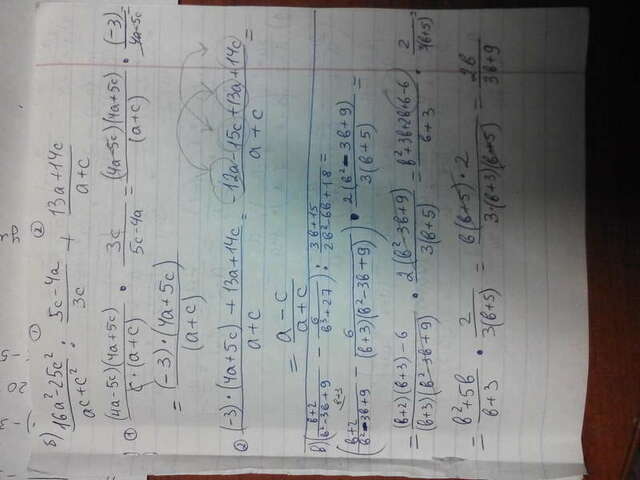 б) (16a²-25c²)/(ac+c²) : (5c-4a)/3c + (13a+14c)/(a+c)
① (4a-5c)(4a+5c)/(c·(a+c)) · 3c/(5c-4a) = (4a-5c)(4a+5c)/(a+c) · (-3)/(4a-5c)
= (-3)·(4a+5c)/(a+c)
② ((-3)·(4a+5c)+13a+14c)/(a+c) = (-12a-15c+13a+14c)/(a+c) =
= (a-c)/(a+c)
в) ((в+2)/(в²-3в+9) - 6/(в³+27)) : (3в+15)/(2в²-6в+18) =
((в+2)/(в²-3в+9) - 6/((в+3)(в²-3в+9))) · 2(в²-3в+9)/3(в+5) =
= ((в+2)(в+3)-6)/((в+3)(в²-3в+9)) · 2(в²-3в+9)/3(в+5) = (в²+3в+2в+6-6)/(в+3) · 2/3(в+5)
= (в²+5в)/(в+3) · 2/3(в+5) = в(в+5)·2/3(в+3)(в+5) = 2в/(3в+9)